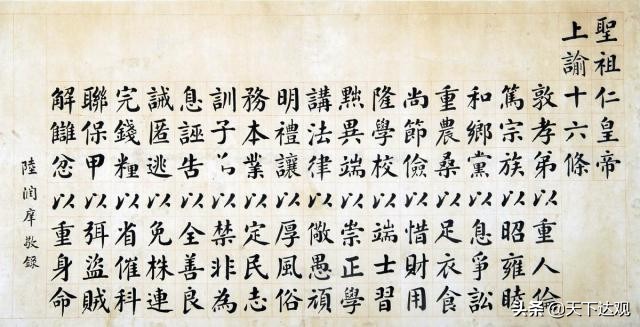 聖祖仁皇帝
上諭十六條
敦孝弟以重人倫
篤宗族以昭雍睦
和鄉黨以息爭訟
重農桑以足衣食
尚節儉以惜財用
隆學校以端士習
黜異端以崇正學
講法律以儆愚頑
明禮讓以厚風俗
務本業以定民志
訓子以禁非為
息誣告以全善良
誡匿逃以免株連
完錢糧以省催科
聯保甲以弭盜賊
解讎忿以重身命
陸潤庠敬録
头条 @天下达观